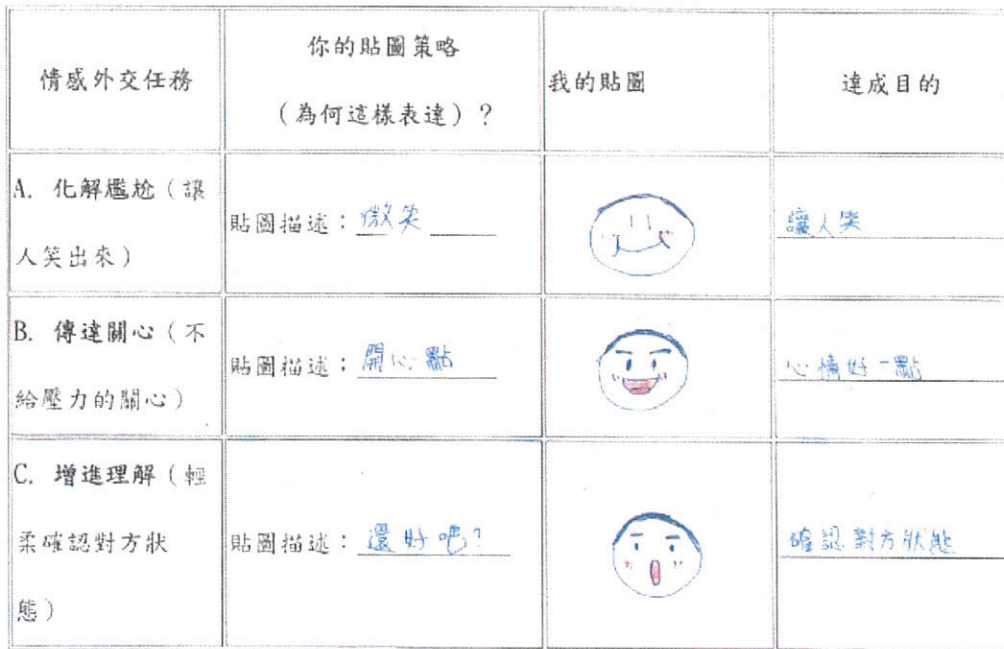 情感外交任務
你的貼圖策略
（為何這樣表達）？
我的貼圖
達成目的
A. 化解尷尬（讓
人笑出來）
貼圖描述：微笑
讓人笑
B. 傳達關心（不
給壓力的關心）
貼圖描述：開心點
心情好一點
C. 增進理解（輕
柔確認對方狀
態）
貼圖描述：還好吧？
確認對方狀態